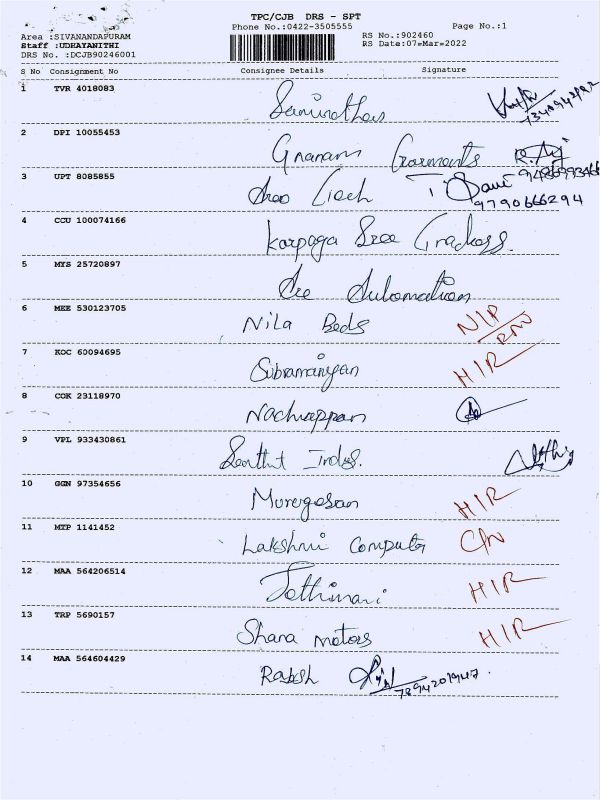 TPC/CJB DRS - SPT
Phone No.:0422-3505555 Page No.:1
Area :SIVANANDAPURAM
Staff :UDHAYANITHI
DRS No. :DCJB90246001
RS No.:902460
RS Date:07-Mar-2022
S No Consignment No Consignee Details Signature
1 TVR 4018083
2 DPI 10055453 Gnanam Garments
9486993466
3 UPT 8085855 Sree Tech T
9790666294
4 CCU 100074166 Karpaga Sree Crackers.
5 MYS 25720897 Sre Automation
6 MEE 530123705 Nila Beds
7 KOC 60094695 Subramaniyan HIR
8 COK 23118970 Nachiappan
9 VPL 933430861 Senthil Indus.
10 GGN 97354656 Murugesan HIR
11 MTP 1141452 Lakshmi Computer C/N
12 MAA 564206514 Jothimani HIR
13 TRP 5690157 Shana motors HIR
14 MAA 564604429 Rajesh